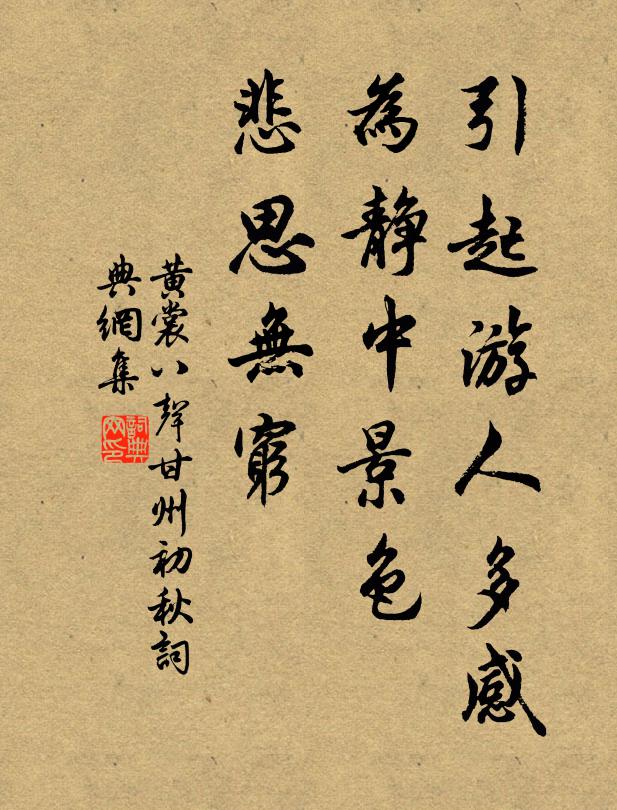 引起游人多感
為静中景色
悲思無窮
黄裳八聲甘州初秋詞
典網集
詞典網印